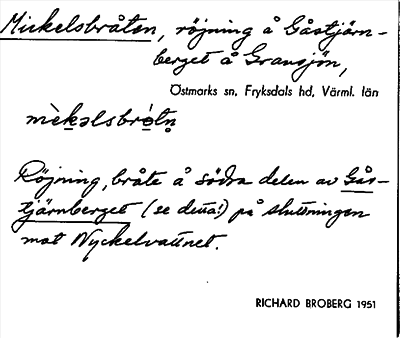 Mickelsbråten, röjning å Gåstjärn-
berget å Gransjön,
Östmarks sn, Fryksdals hd, Värml. län
mè̀kəlsbrò̀tn̥
Röjning, bråte å södra delen av Gås-
tjärnberget (se detta!) på sluttningen
mot Nyckelvattnet.
RICHARD BROBERG 1951